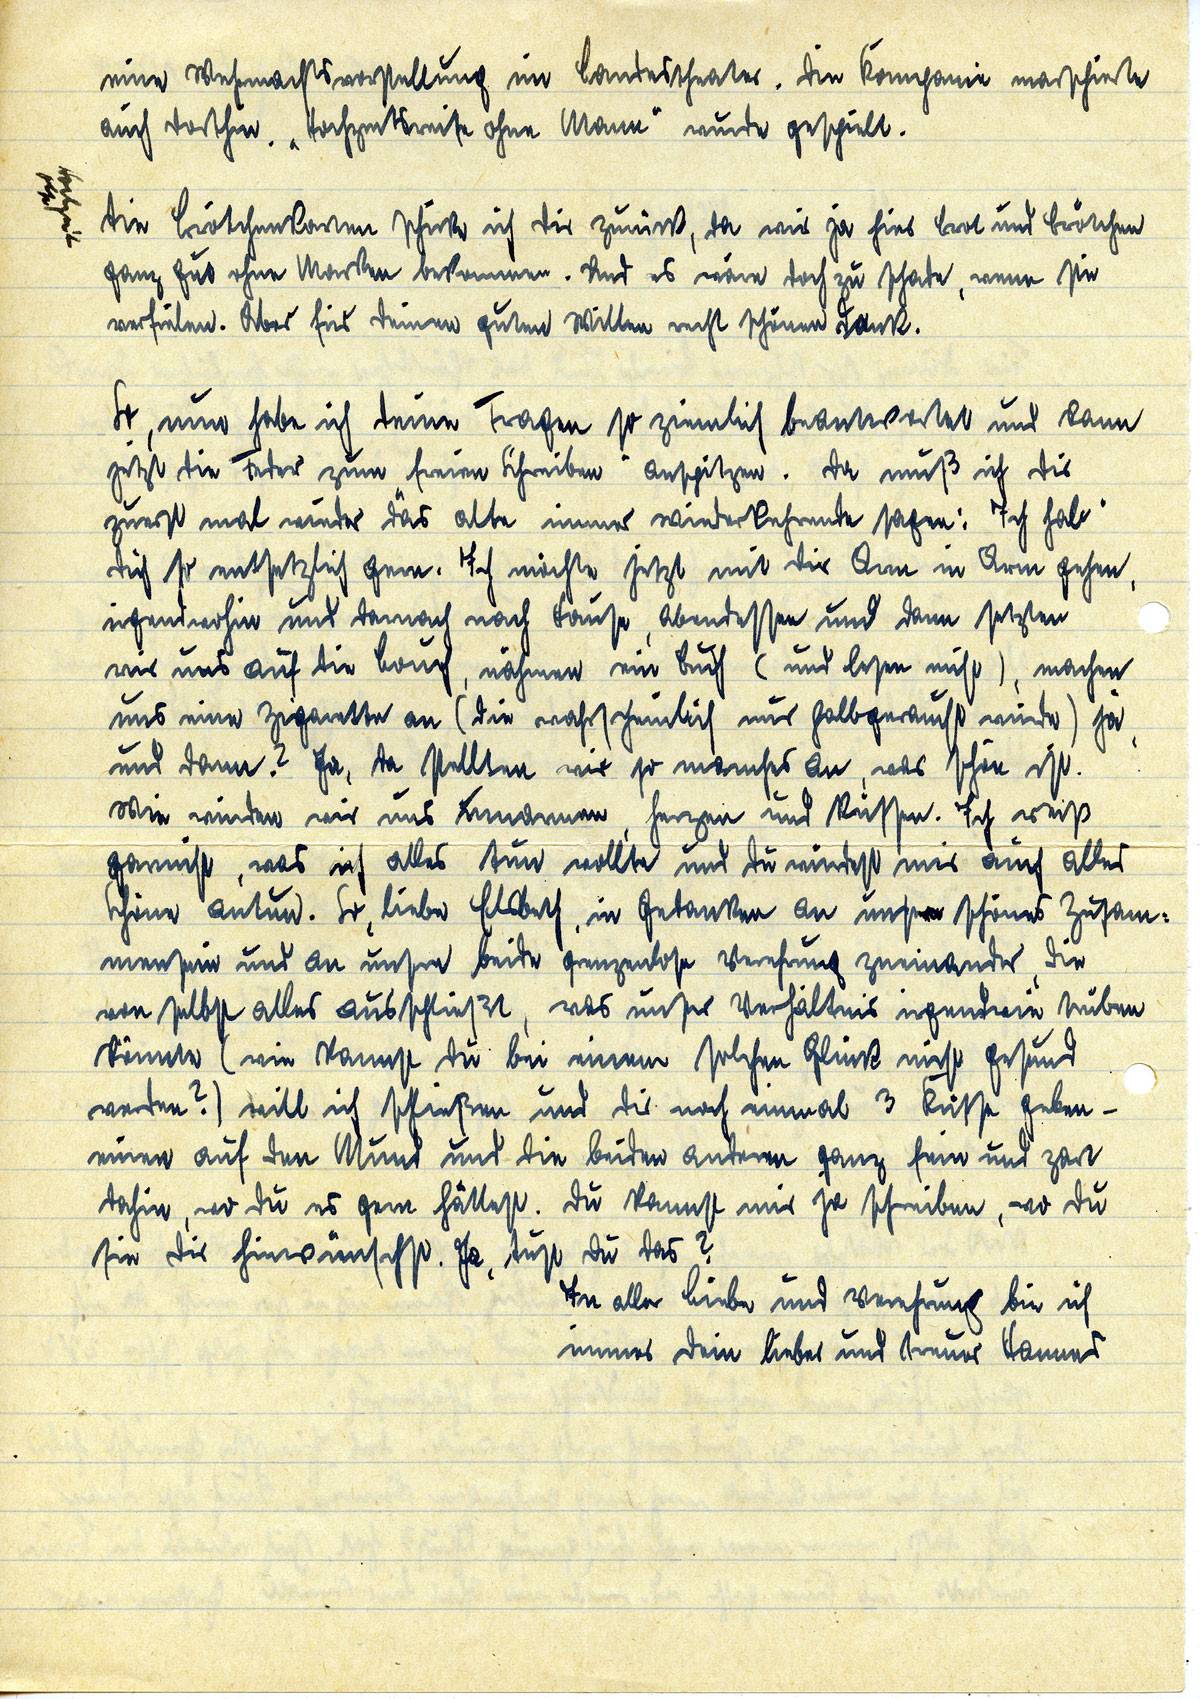 eine Wehrmachtsvorstellung im Landestheater. Die Kompanie marschierte
auch dorthin. „Hochzeitsreise ohne Mann“ wurde gespielt.
Die Brötchenkarten schicke ich dir zurück, da wir ja hier Brot und Brötchen
ganz gut ohne Marken bekommen. Und es wäre doch zu schade, wenn sie
verfielen. Aber für deinen guten Willen recht schönen Dank.
So, nun habe ich deine Fragen so ziemlich beantwortet und kann
jetzt die Feder zum „freien Schreiben“ anspitzen. Da muß ich dir
zuerst mal wieder das alte immer wiederkehrende sagen: Ich hab'
dich so entsetzlich gern. Ich möchte jetzt mit dir Arm in Arm gehen,
irgendwohin und danach nach Hause, Abendessen und dann setzten
wir uns auf die Couch, nähmen ein Buch (und lesen nicht), machen
uns eine Zigarette an (die wahrscheinlich nur halbgeraucht würde) ja,
und dann? Ja, da stellten wir so manches an, was schön ist.
Wie würden wir uns umarmen, herzen und küssen. Ich weiß
garnicht, was ich alles tun wollte und du würdest mir auch alles
Schöne antun. So, liebe Elsbeth, in Gedanken an unser schönes Zusam-
mensein und an unsre beide grenzenlose Verehrung zueinander, die
von selbst alles ausschließt, was unser Verhältnis irgendwie trüben
könnte (wie kannst du bei einem solchen Glück nicht gesund
werden?) will ich schließen und dir noch einmal 3 Küsse geben –
einen auf den Mund und die beiden anderen ganz fein und zart
dahin, wo du es gern hättest. Du kannst mir ja schreiben, wo du
sie dir hinwünschst. Ja, tust du das?
In aller Liebe und Verehrung bin ich
immer dein lieber und treuer Hannes